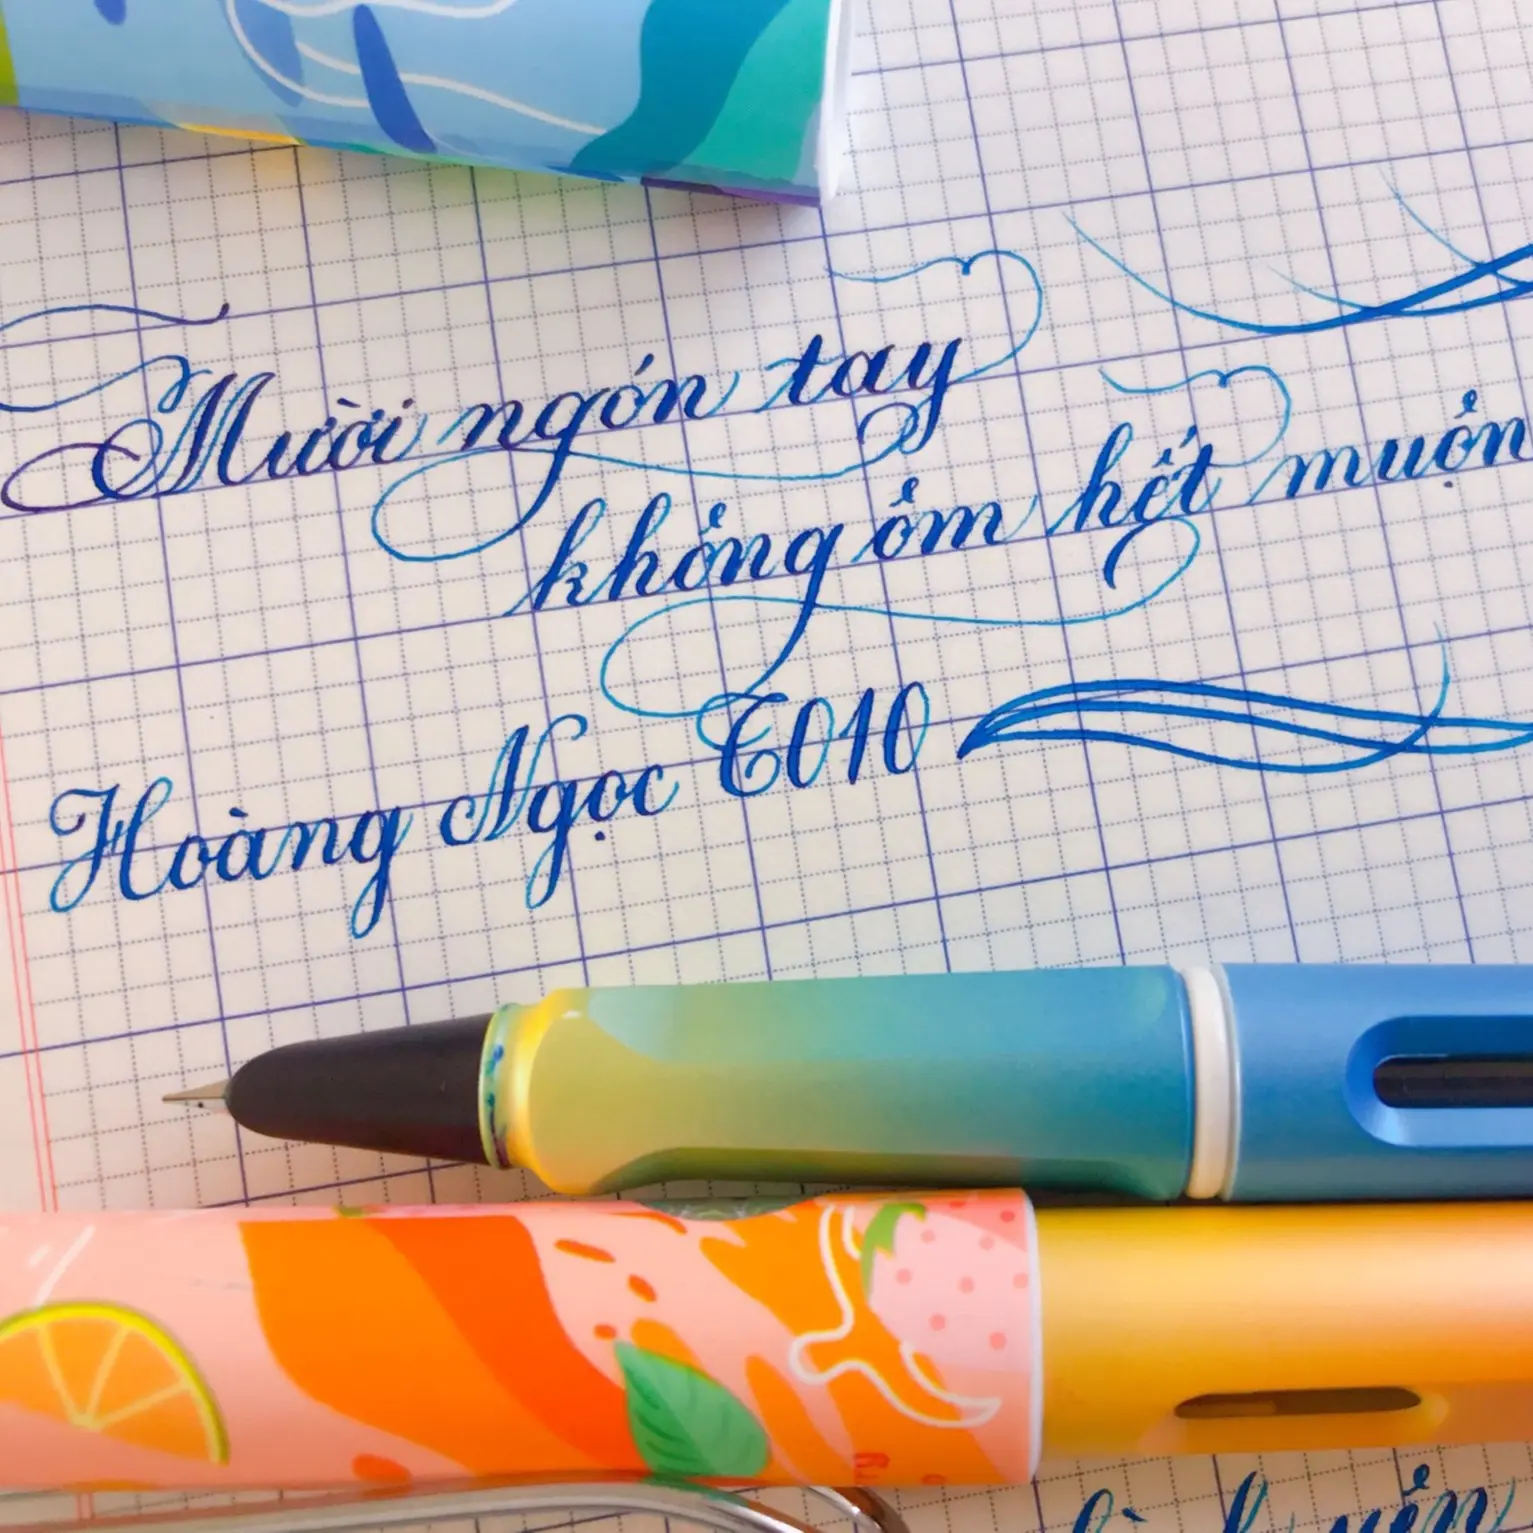 Mười ngón tay
không ôm hết muộn
Hoàng Ngọc C010